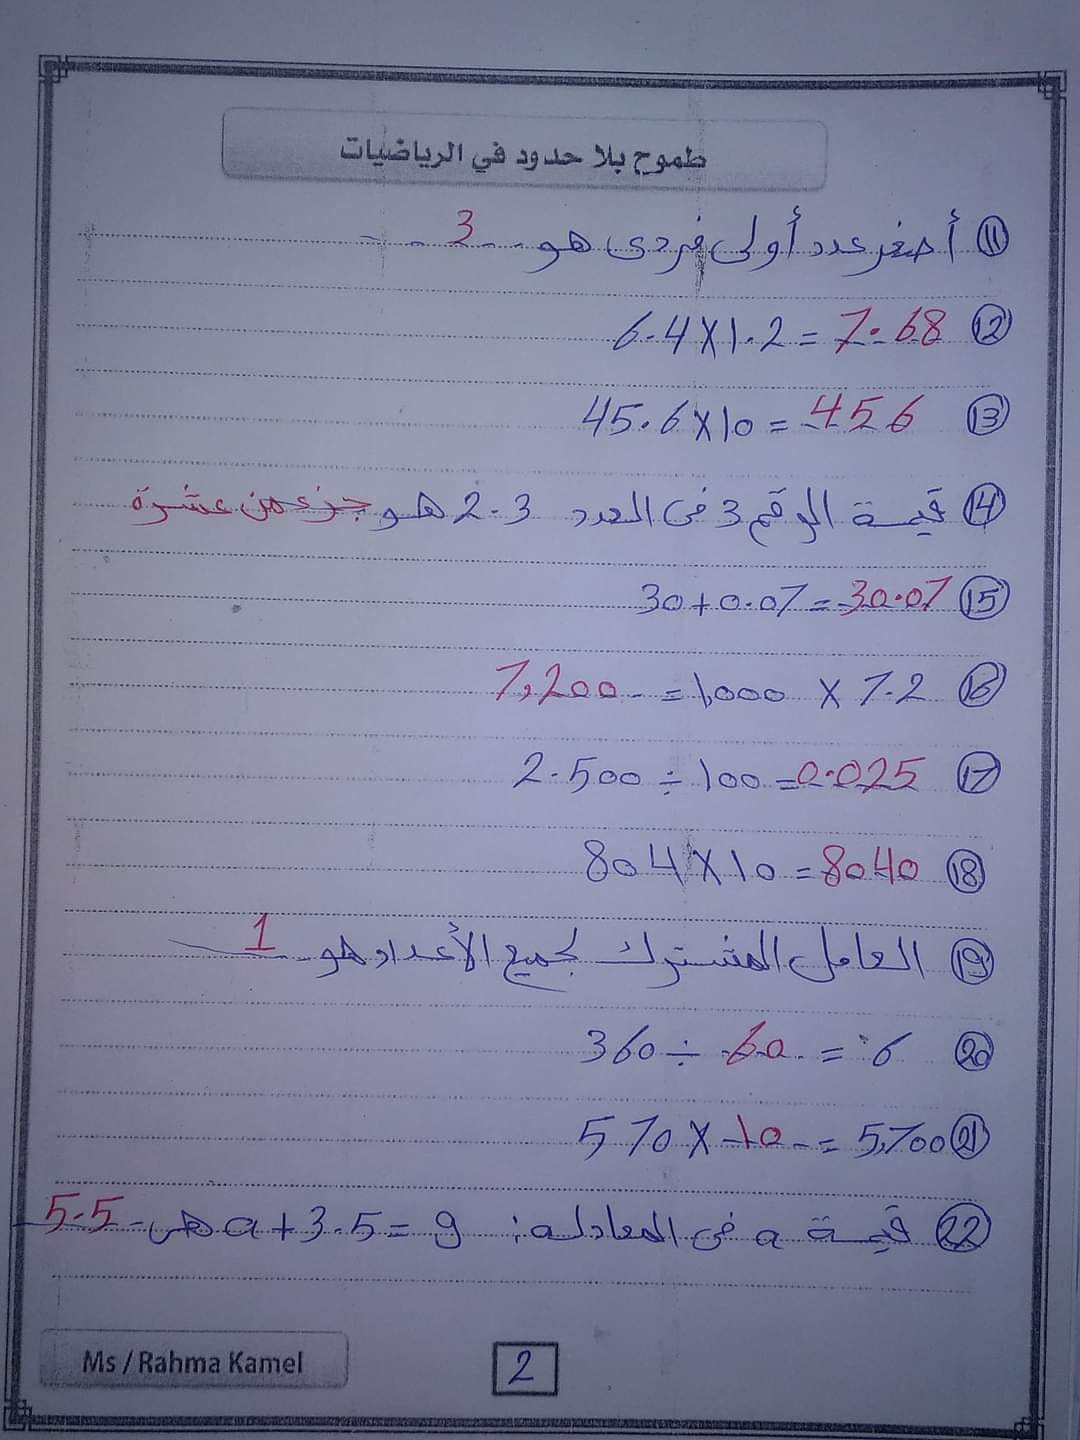 طموح بلا حدود في الرياضيات
⑪ أصغر عدد أولى فردى هو 3
⑫ 6.4 X 1.2 = 7.68
⑬ 45.6 X 10 = 456
⑭ قيمة الرقم 3 فى العدد 2.3 هو جزء من عشرة
⑮ 30 + 0.07 = 30.07
⑯ 7.2 X 1,000 = 7,200
⑰ 2.500 ÷ 100 = 0.025
⑱ 804 X 10 = 8040
⑲ العامل المشترك لجميع الأعداد هو 1
⑳ 360 ÷ 60 = 6
㉑ 570 X 10 = 5,700
㉒ قيمة a فى المعادلة: a + 3.5 = 9 هى 5.5
Ms / Rahma Kamel
2